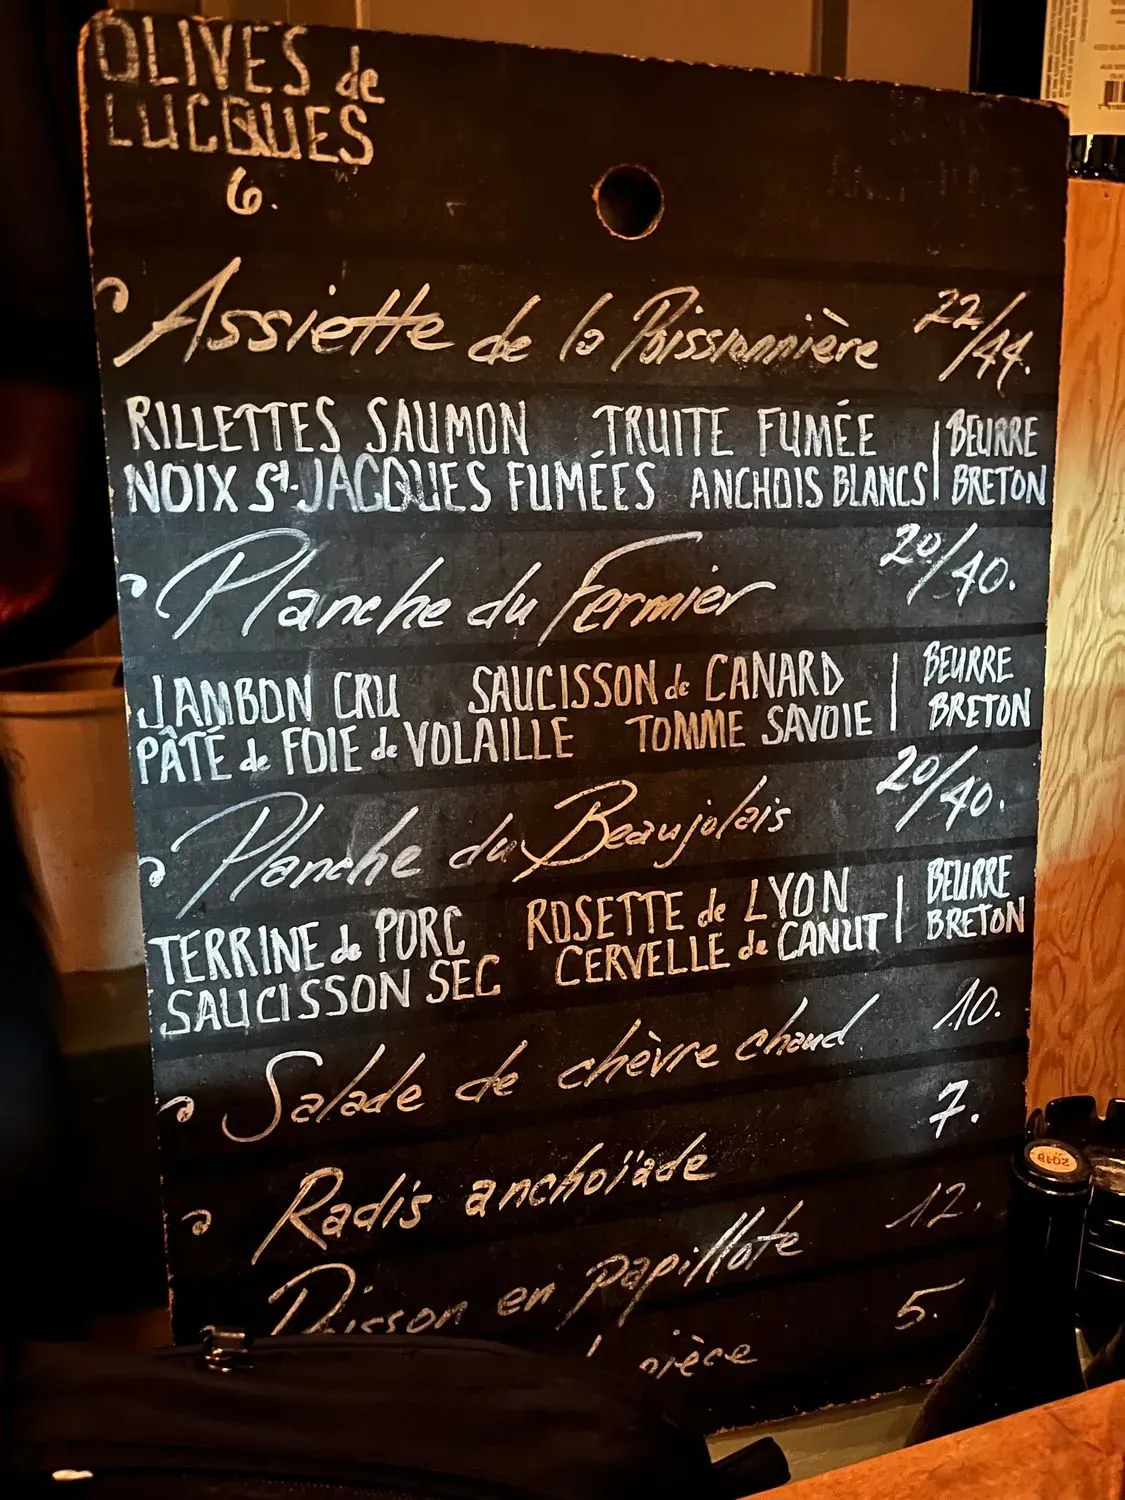 OLIVES de
LUCQUES
6.
Assiette de la Poissonnière 22/44.
RILLETTES SAUMON TRUITE FUMÉE | BEURRE
NOIX St-JACQUES FUMÉES ANCHOIS BLANCS | BRETON
Planche du Fermier 20/40.
JAMBON CRU SAUCISSON de CANARD | BEURRE
PÂTÉ de FOIE de VOLAILLE TOMME SAVOIE | BRETON
Planche du Beaujolais 20/40.
TERRINE de PORC ROSETTE de LYON | BEURRE
SAUCISSON SEC CERVELLE de CANUT | BRETON
Salade de chèvre chaud 10.
Radis anchoïade 7.
Poisson en papillote 12.
pièce 5.